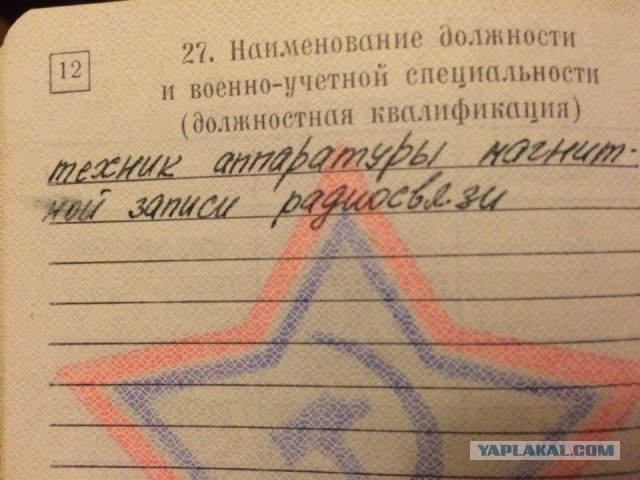 12
27. Наименование должности
и военно-учетной специальности
(должностная квалификация)
техник аппаратуры магнит-
ной записи радиосвязи
YAPLAKAL.COM